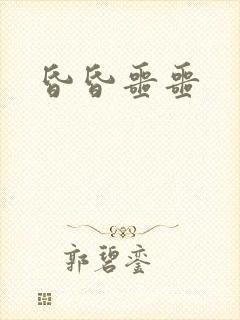 昏昏噩噩
郭碧銮